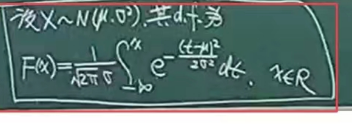 设X~N(μ,σ²),其d.f.为
F(x)=\frac{1}{\sqrt{2π}σ}\int_{-∞}^{x} e^{-\frac{(t-μ)^2}{2σ^2}}dt, x∈R